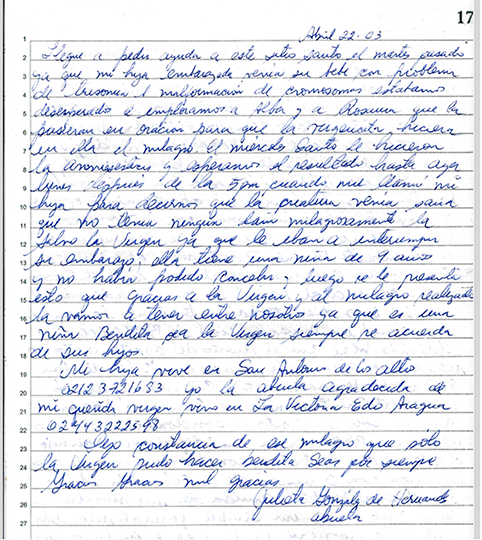 17
Abril 22-03
1
2 Llegue a pedir ayuda a este sitio santo el martes pasado
3 ya que mi hija embarazada venia su bebe con problema
4 de trisomia e malformación de cromosomas estabamos
5 desesperados e imploramos a Alba y a Rosaura que la
6 pusieran en oracion para que la Virgencita hiciera
7 en ella el milagro. El miercoles santo le hicieron
8 la amniosentesis y esperamos el resultado hasta ayer
9 lunes despues de la 5 pm cuando me llamó mi
10 hija para decirnos que la criatura venia sana
11 que no tenia ningún daño milagrosamente la
12 salvo la Virgen ya que le iban a interrumpir
13 su embarazo, ella tiene una niña de 9 años
14 y no habia podido concebir, luego se le presenta
15 esto que gracias a la Virgen y al milagro realizado
16 la vamos a tener entre nosotros ya que es una
17 niña Bendita sea la Virgen siempre se acuerda
18 de sus hijos.
19 Mi hija vive en San Antonio de los alto
20 02123721633 yo la abuela agradecida de
21 mi querida virgen vivo en La Victoria Edo Aragua
22 02443222598
23 Dejo constancia de ese milagro que sólo
24 la Virgen pudo hacer bendita Seas por siempre
25 Gracias Gracias mil gracias
26 Julieta González de Hernandez
27 abuela